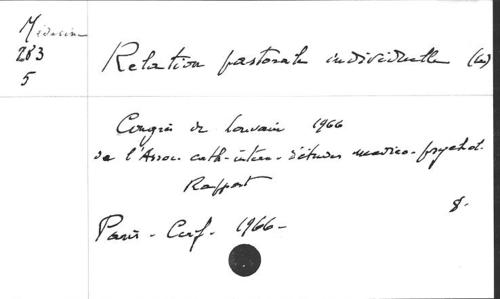 Médecine
283
5
Relation pastorale individuelle (la)
Congrès de Louvain 1966
de l'Assoc. cath. inter. d'études medico-psychol.
Rapport
8.
Paris - Cerf - 1966 -